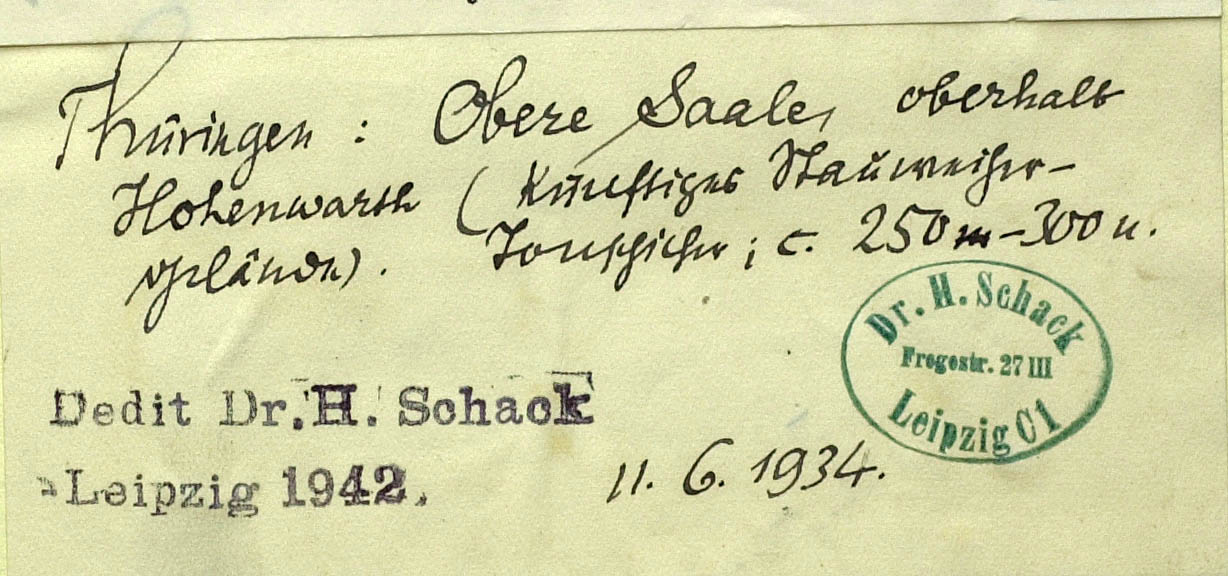 Thüringen: Obere Saale, oberhalb
Hohenwarth (künftiges Stauweiher-
gelände). Tonschiefer; c. 250 m-300 m.
Dr. H. Schack
Fregestr. 27 III
Leipzig C1
Dedit Dr. H. Schack
Leipzig 1942.
11. 6. 1934.